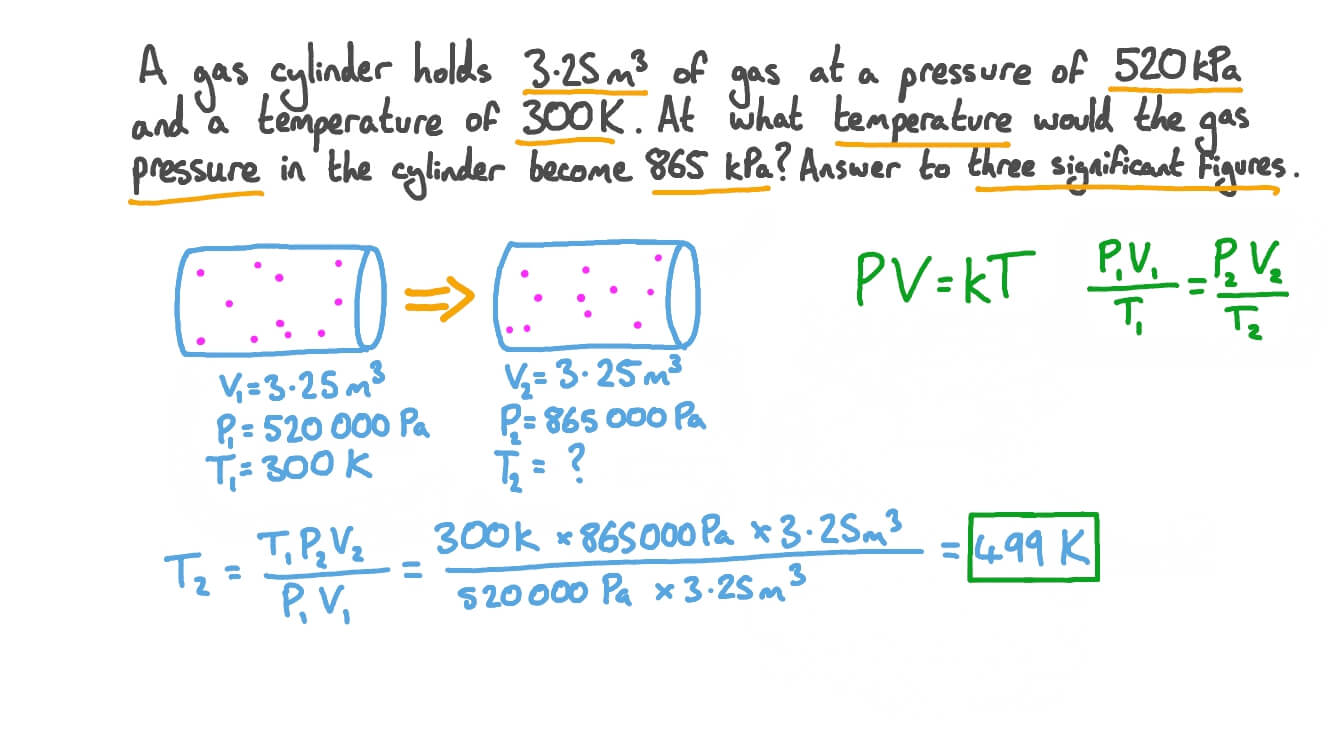 A gas cylinder holds 3.25m³ of gas at a pressure of 520 kPa
and a temperature of 300K. At what temperature would the gas
pressure in the cylinder become 865 kPa? Answer to three significant figures.
PV=kT P₁V₁/T₁ = P₂V₂/T₂
V₁=3.25m³
P₁=520 000 Pa
T₁=300 K
V₂=3.25m³
P₂=865 000 Pa
T₂ = ?
T₂ = T₁P₂V₂/P₁V₁ = 300k × 865000Pa × 3.25m³/520000 Pa × 3.25m³ = 499 K